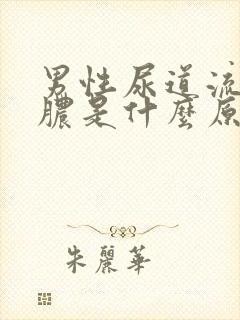 男性尿道流
膿是什麼原
朱麗華